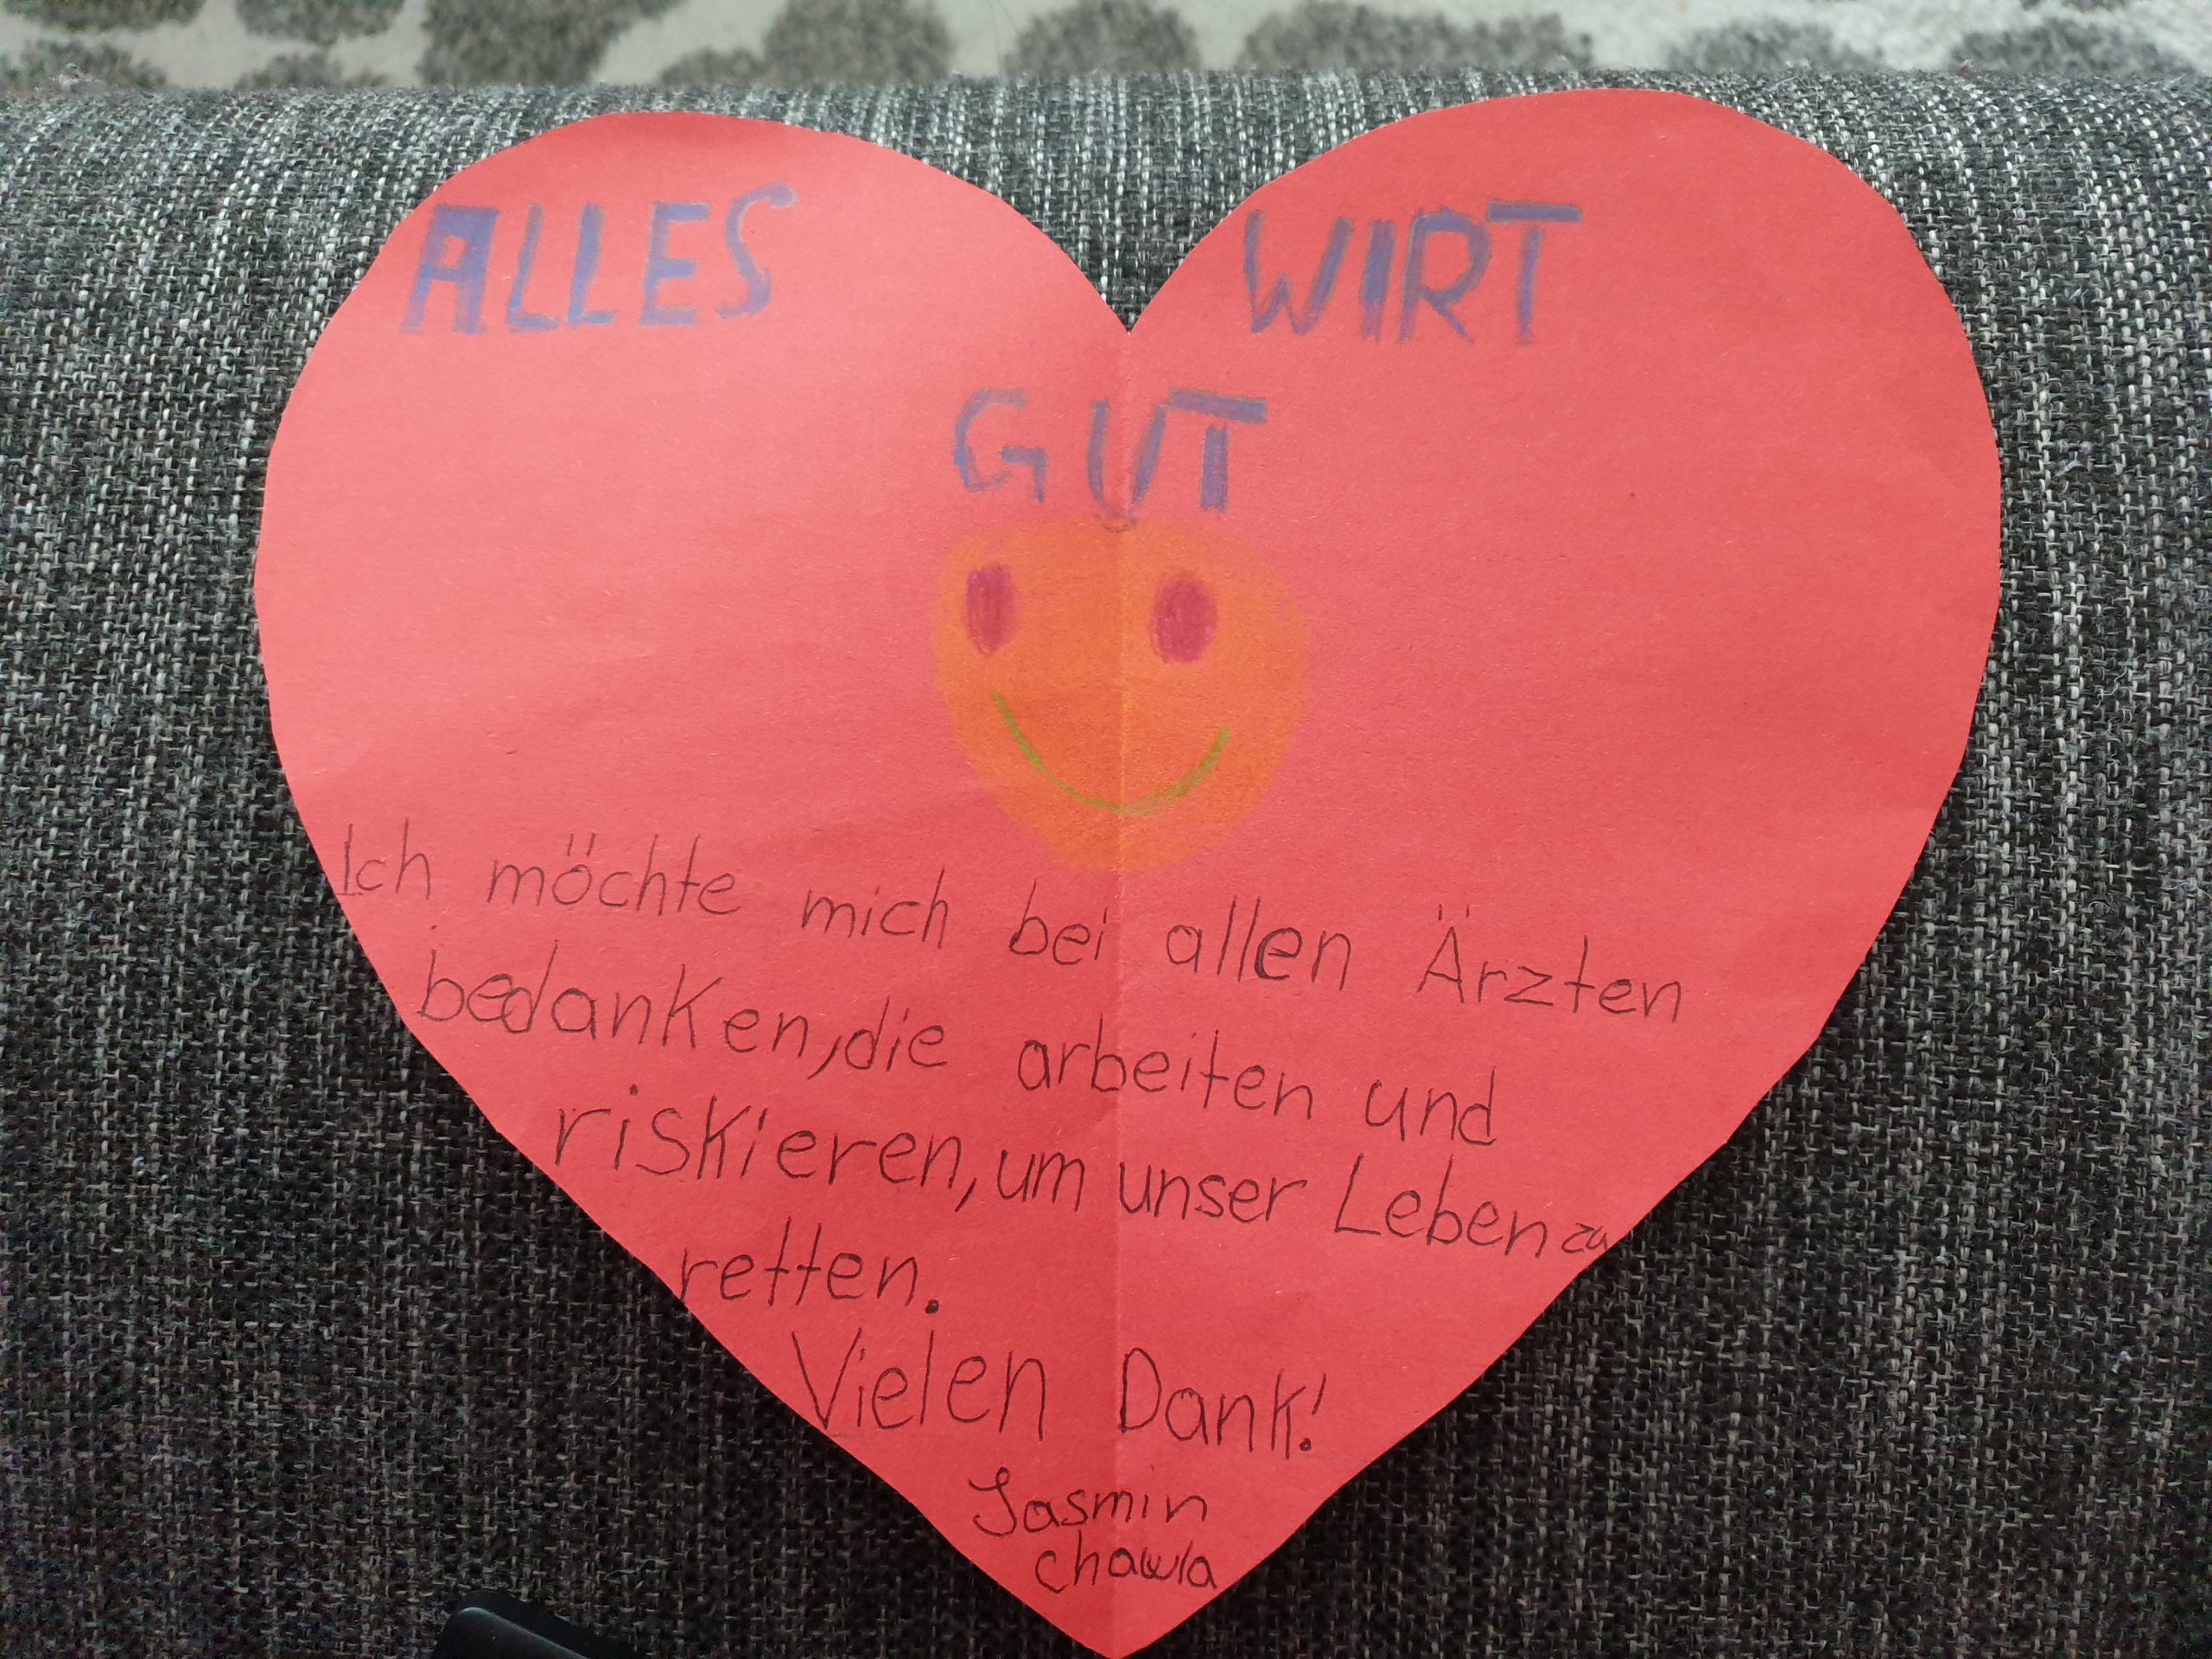 ALLES WIRT
GUT
Ich möchte mich bei allen Ärzten
bedanken, die arbeiten und
riskieren, um unser Leben zu
retten.
Vielen Dank!
Jasmin
chawla